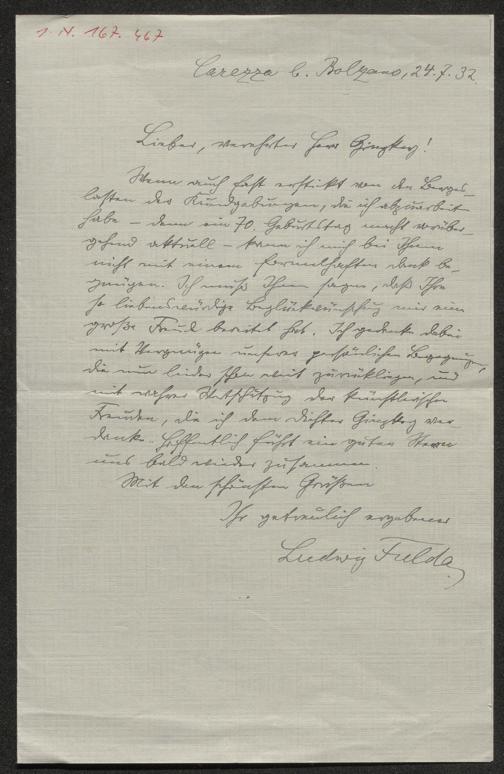 I. N. 167.467
Carezza b. Bolzano, 24.7.32
Lieber, verehrter Herr Ginzkey!
Wenn auch fast erstickt von den Berges-
lasten der Kundgebungen, die ich abzuarbeiten
habe – denn ein 70. Geburtstag macht vorüber-
gehend aktuell – kann ich mich bei Ihnen
nicht mit einem formelhaften Dank be-
gnügen. Ich muß Ihnen sagen, daß Ihre
so liebenswürdige Beglückwünschung mir eine
große Freude bereitet hat. Ich gedenke dabei
mit Vergnügen unserer persönlichen Begegnungen,
die nun leider schon weit zurückliegen, und
mit wahrer Wertschätzung der künstlerischen
Freuden, die ich dem Dichter Ginzkey ver-
danke. Hoffentlich führt ein guter Stern
uns bald wieder zusammen.
Mit den schönsten Grüßen
Ihr getreulich ergebener
Ludwig Fulda.